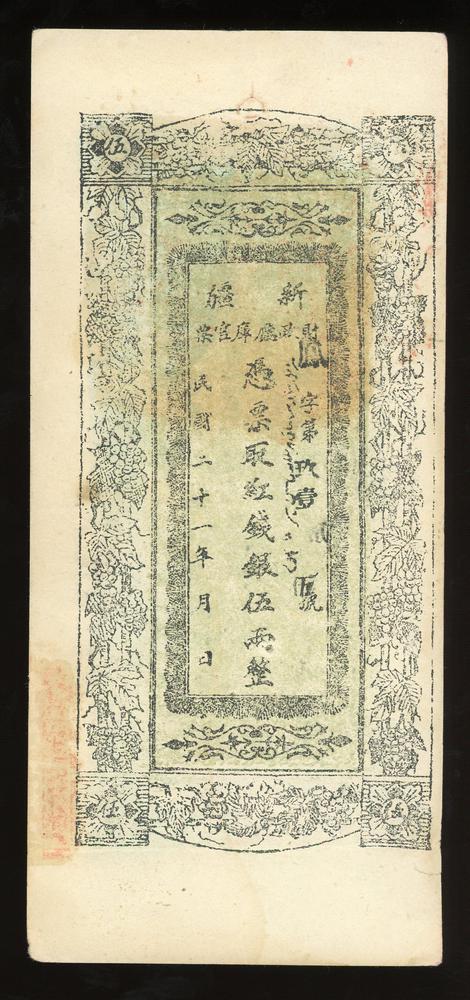 伍
新疆
財政廳庫官票
字第玖壹號
憑票取紅錢銀伍兩整
民國二十一年月日
伍
伍